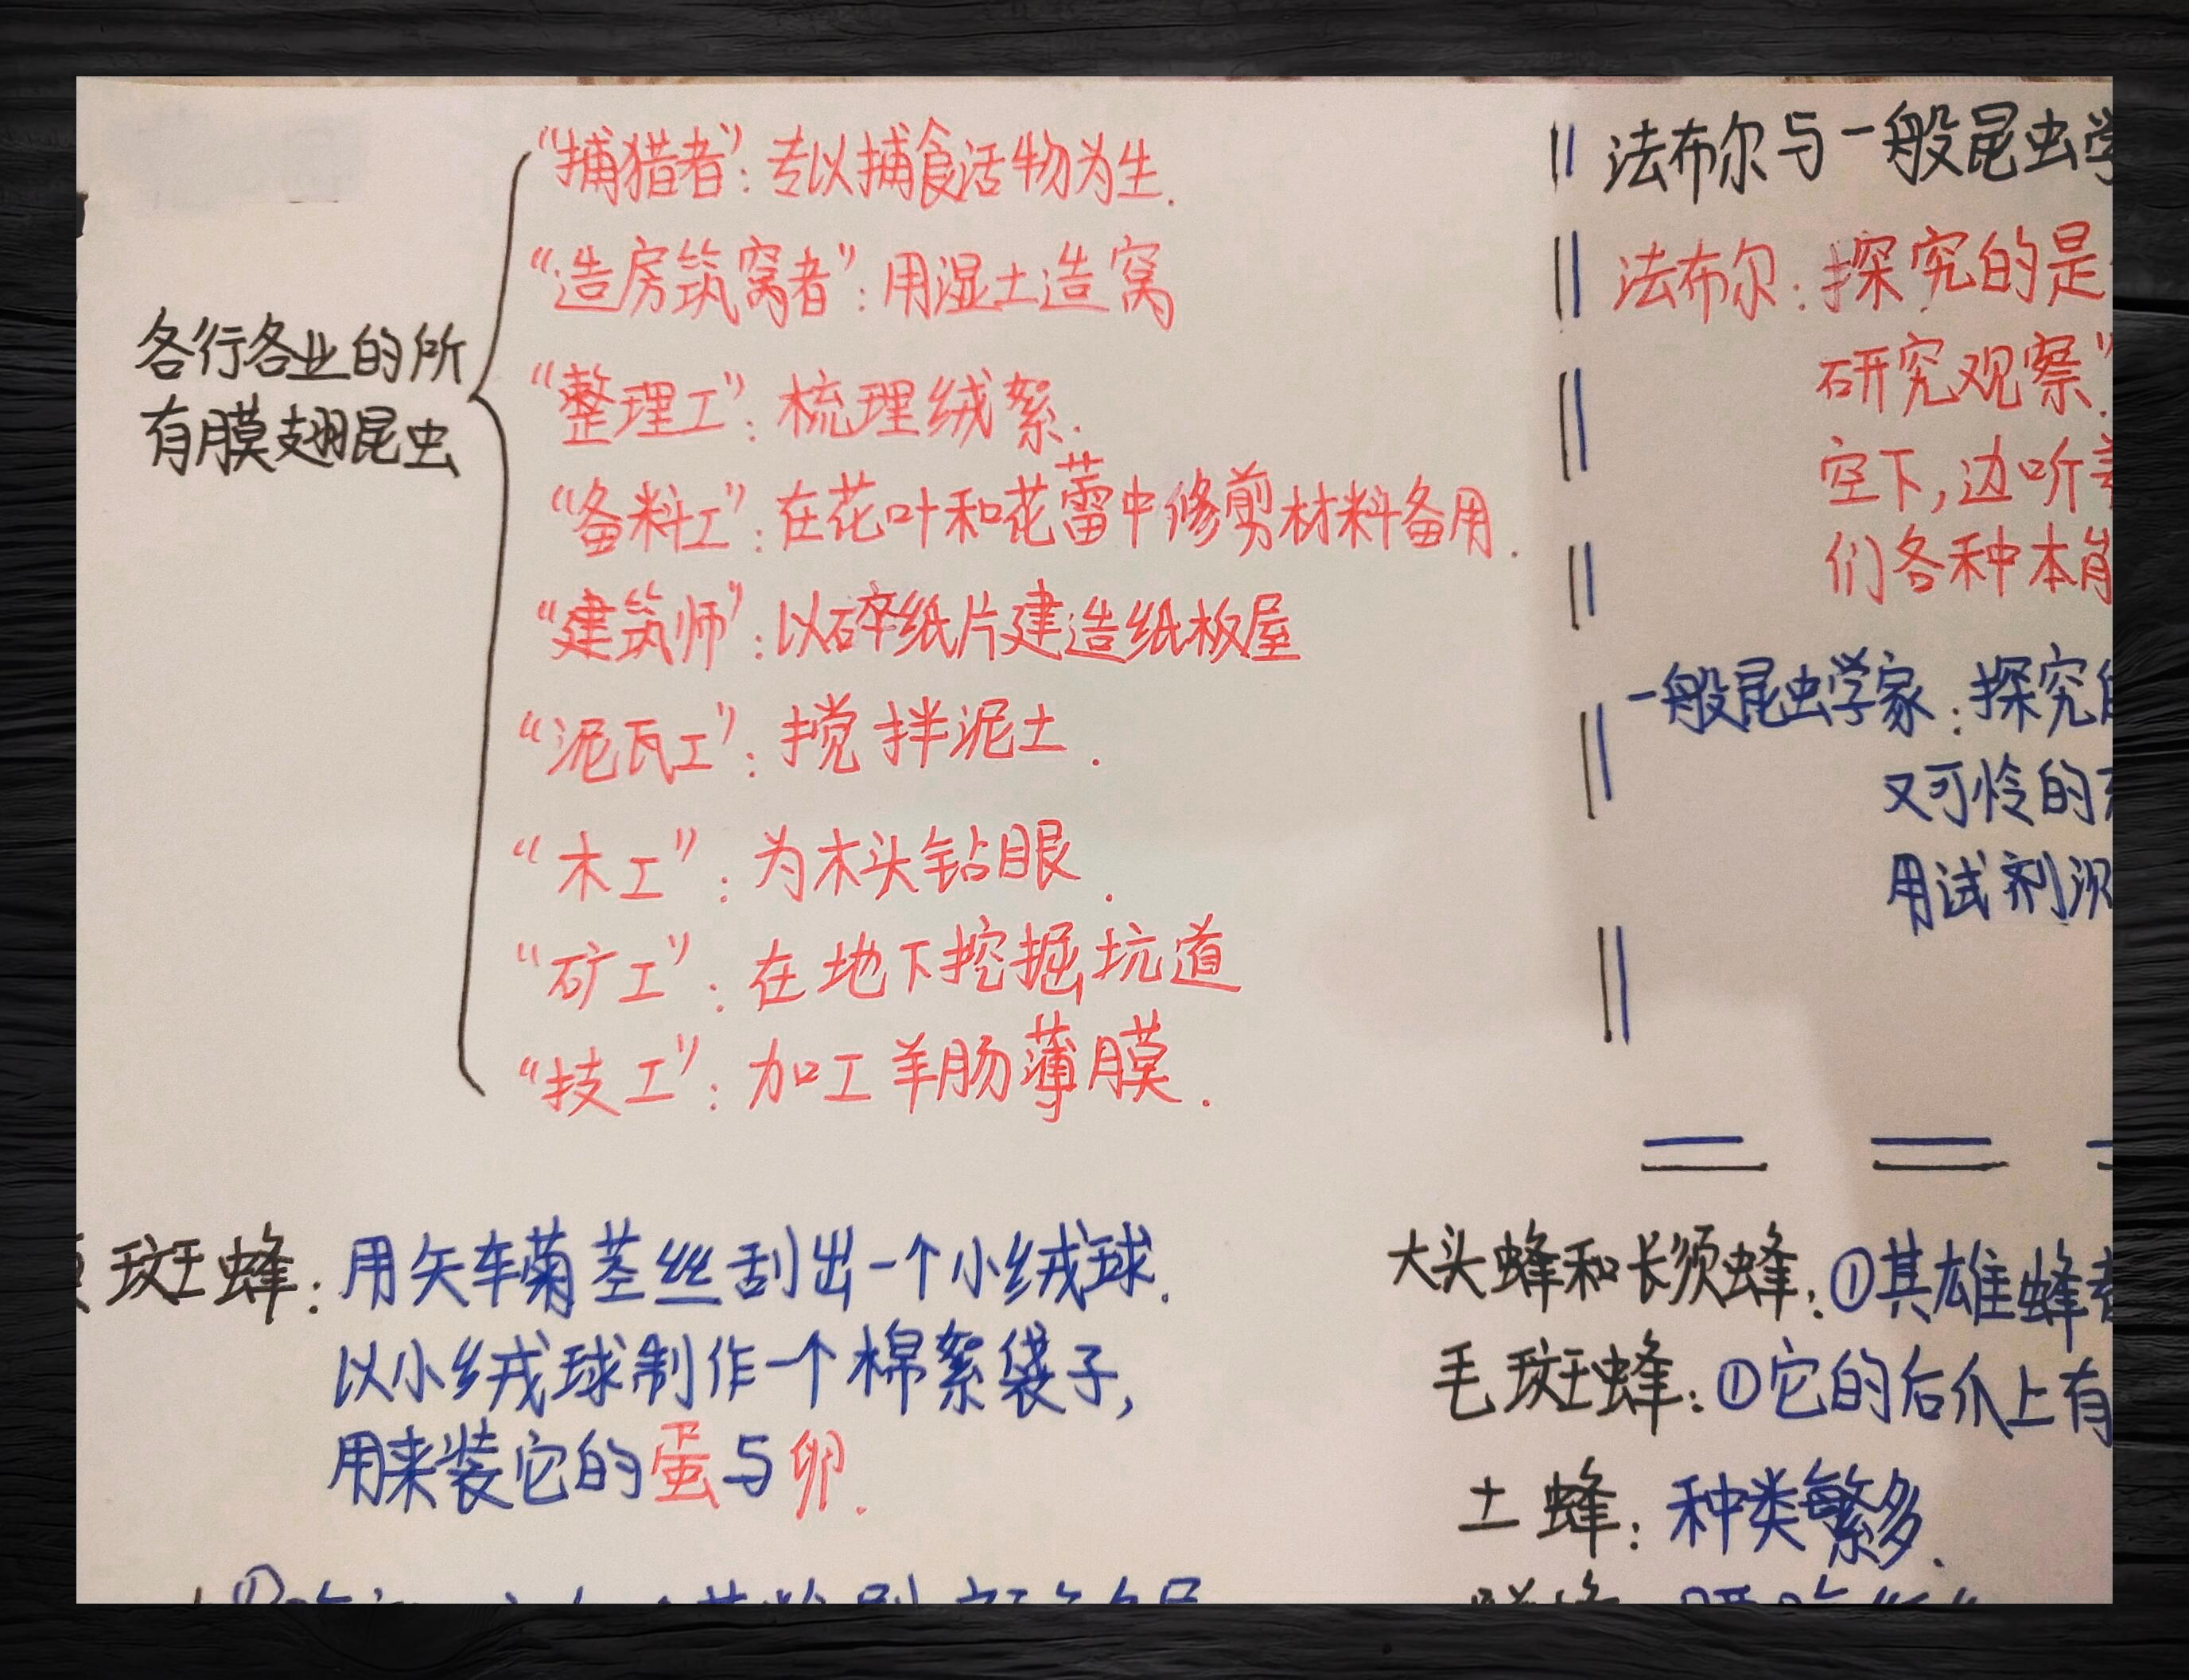 各行各业的所
有膜翅昆虫
“捕猎者”:专以捕食活物为生.
“造房筑窝者”:用湿土造窝
“整理工”:梳理绒絮.
“备料工”:在花叶和花蕾中修剪材料备用.
“建筑师”:以碎纸片建造纸板屋
“泥瓦工”:搅拌泥土.
“木工”:为木头钻眼.
“矿工”:在地下挖掘坑道
“技工”:加工羊肠薄膜.
法布尔与一般昆虫学
法布尔:探究的是
研究观察”
空下,边听
们各种本能
一般昆虫学家:探究
又可怜的
用试剂
斑蜂:用矢车菊茎丝刮出一个小绒球.
以小绒球制作一个棉絮袋子,
用来装它的蛋与卵.
大头蜂和长须蜂:①其雄蜂
毛斑蜂:①它的后爪上有
土蜂:种类繁多.